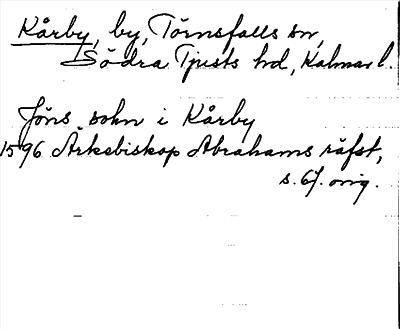 Kårby, by, Törnsfalls sn,
Södra Tjusts hd, Kalmar l.
Jöns sohn i Kårby
1596 Ärkebiskop Abrahams räfst,
s. 67. orig.